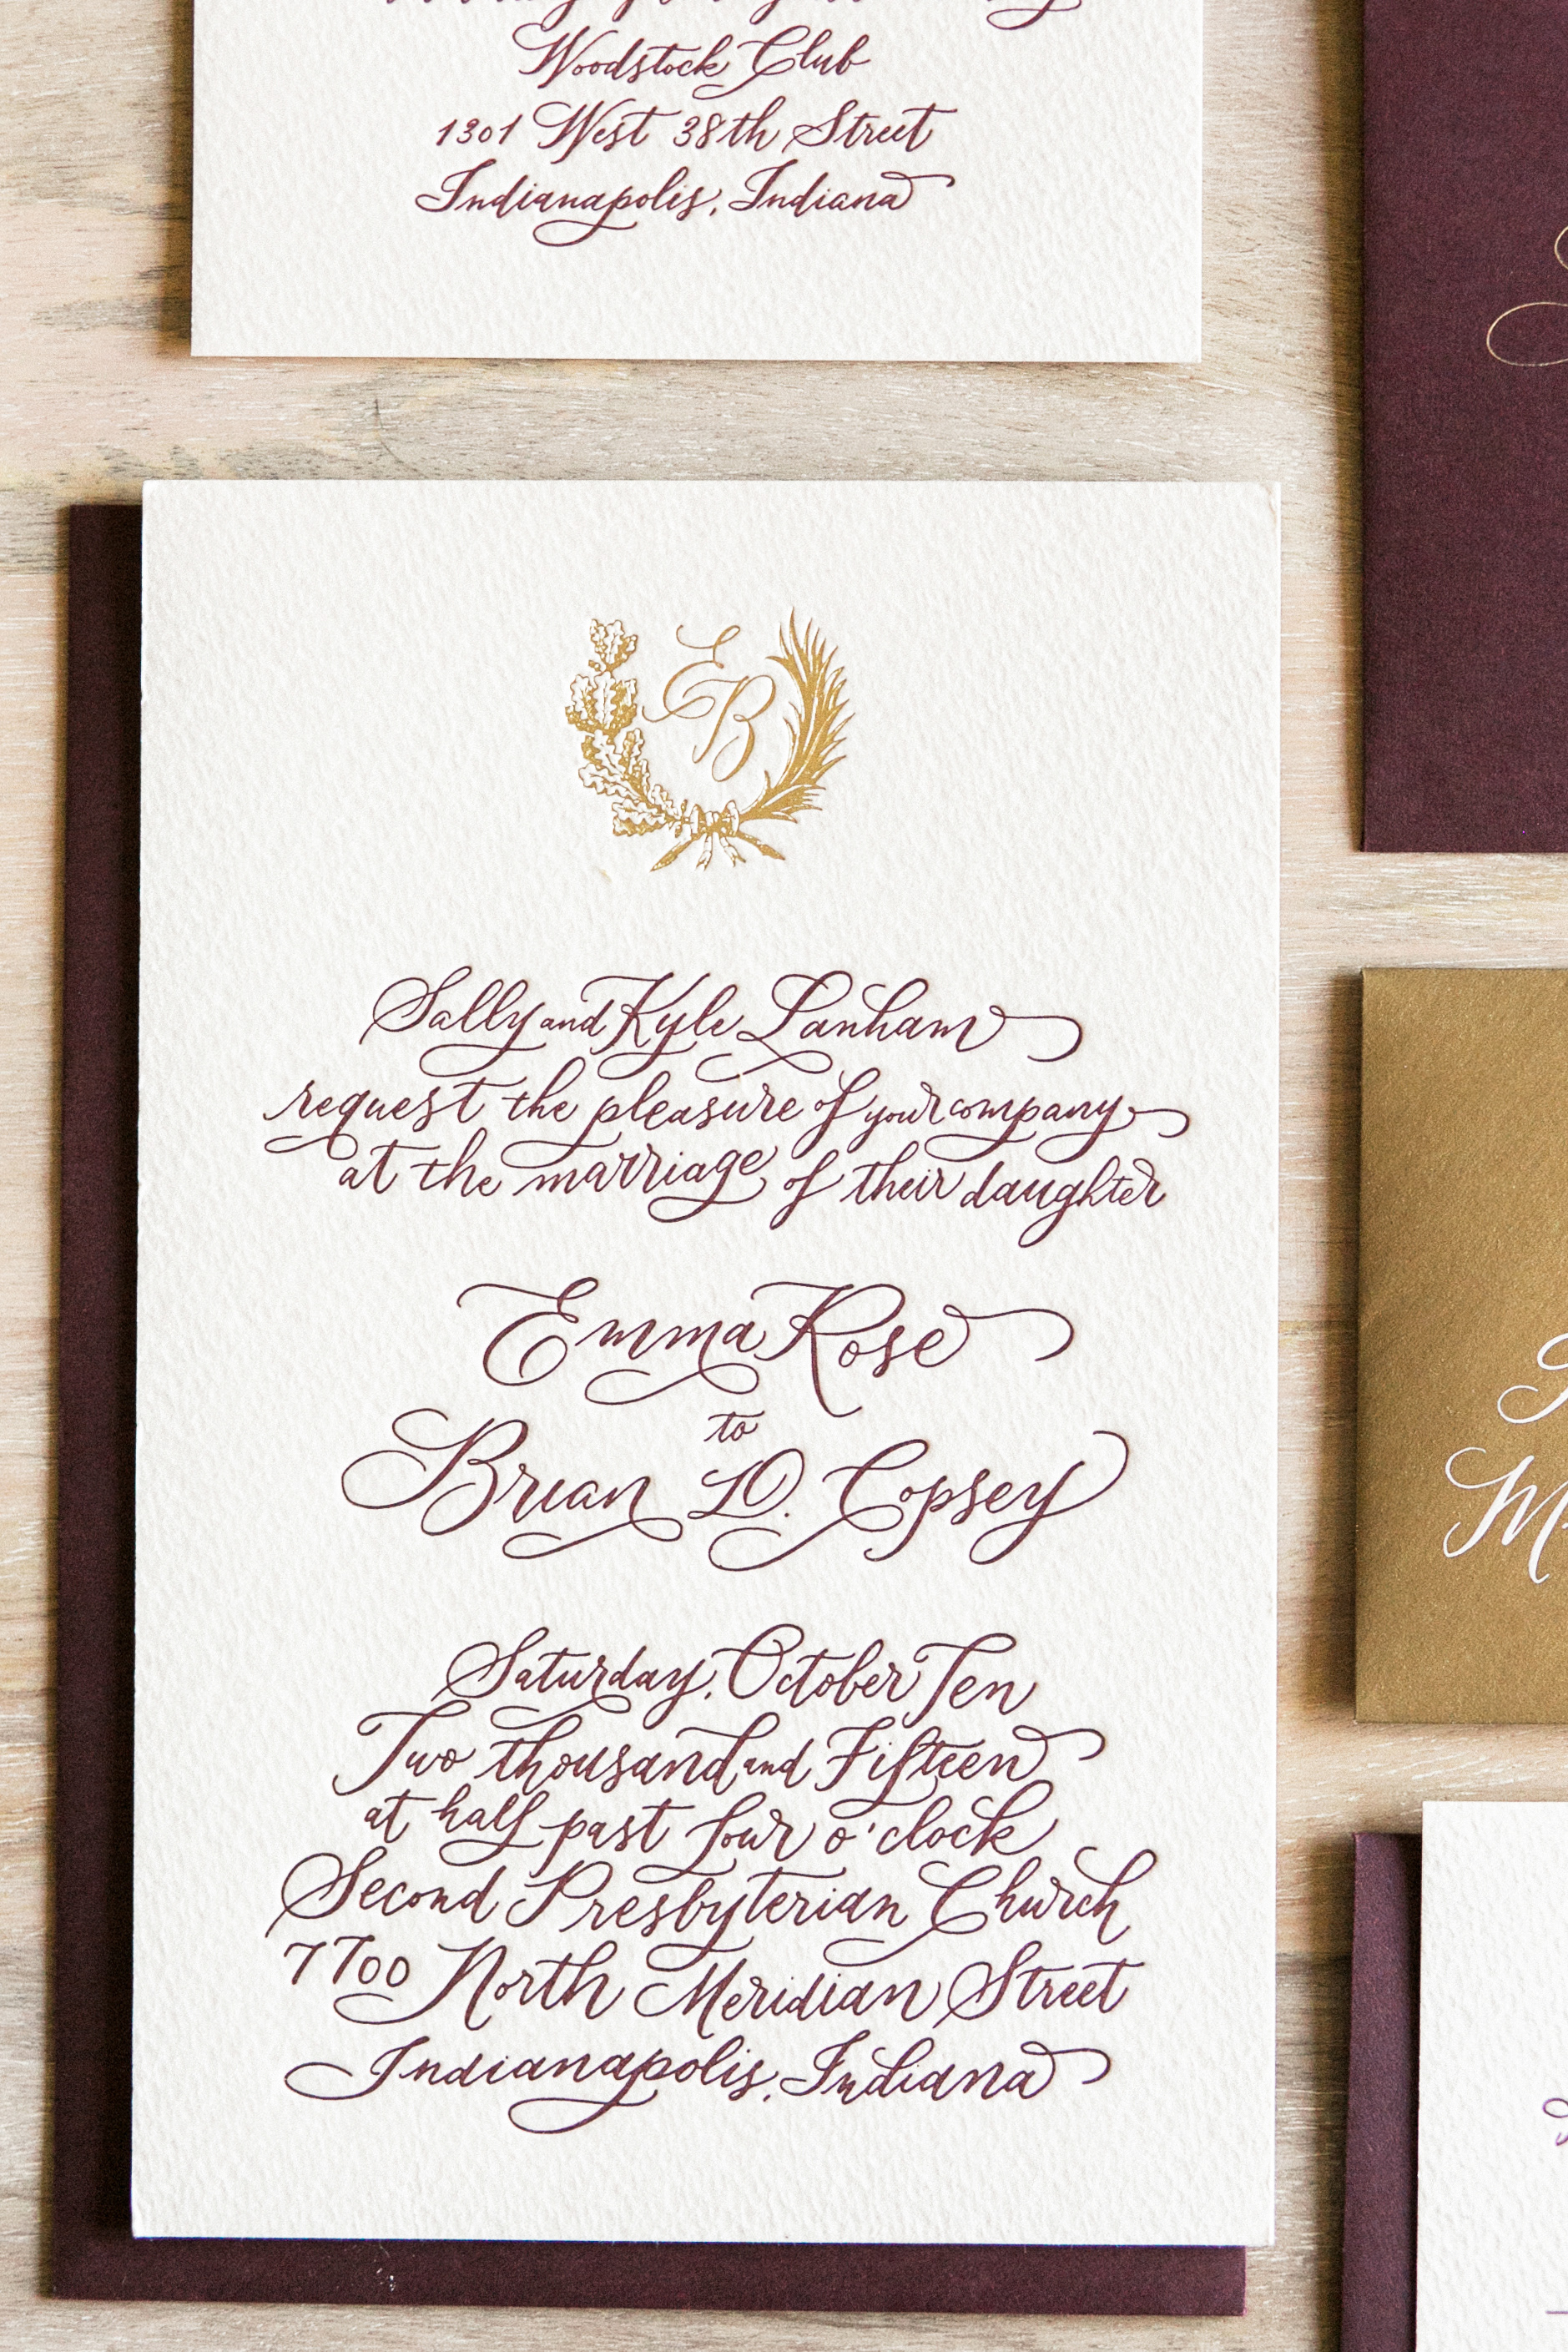 Woodstock Club
1301 West 38th Street
Indianapolis, Indiana
EB
Sally and Kyle Lanham
request the pleasure of your company
at the marriage of their daughter
Emma Rose
to
Brian D. Copsey
Saturday, October Ten
Two thousand and Fifteen
at half past four o'clock
Second Presbyterian Church
7700 North Meridian Street
Indianapolis, Indiana
M